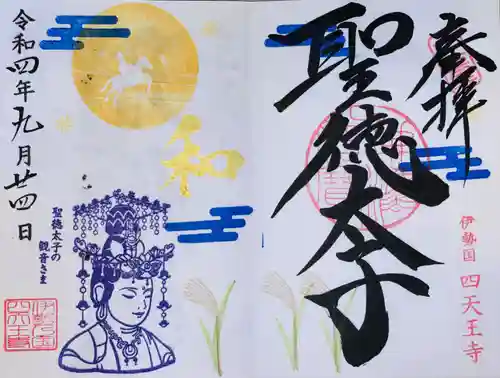 奉拝
聖徳太子
伊勢国 四天王寺
令和四年九月廿四日
和
聖徳太子の
観音さま